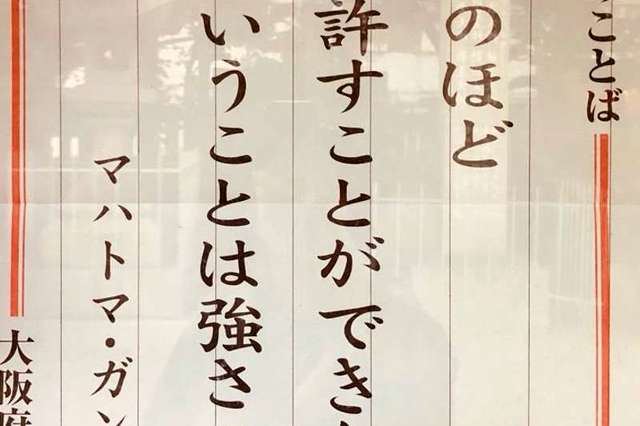 ことば
のほど
許すことができ
いうことは強さ
マハトマ・ガン
大阪府